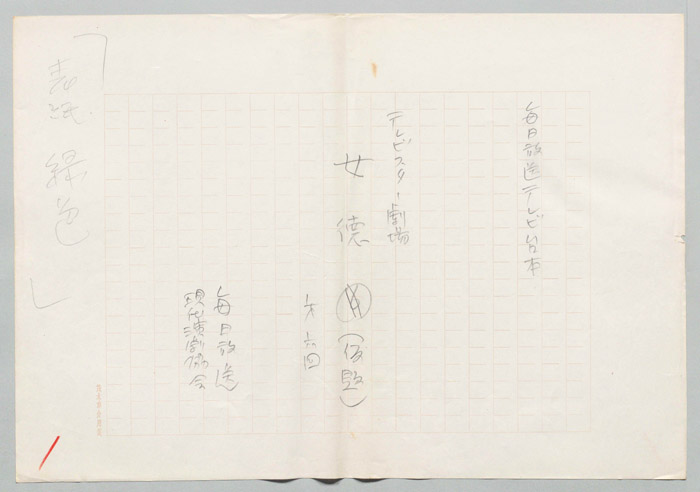 毎日放送テレビ台本
テレビスター劇場
女德 (仮題)
才六回
毎日放送
現代演劇協会
「表紙 緑色」